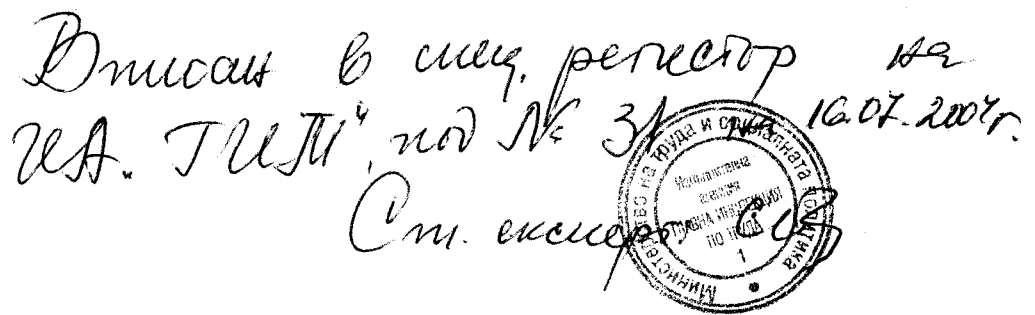 Вписан в спец. регистър на
ИА „ГИТ“, под № 31 16.07.2004г.
Ст. експерт:
Министерство на труда и социалната политика
Изпълнителна
агенция
ГЛАВНА ИНСПЕКЦИЯ
ПО ТРУДА
1